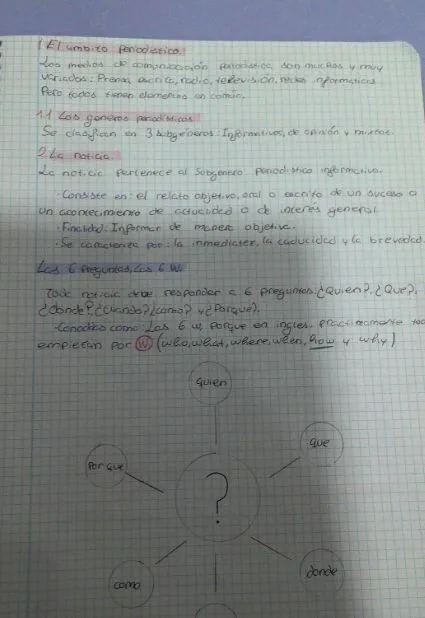 1 El ámbito periodístico.
Los medios de comunicación periodística, son muchos y muy
variados: Prensa, escrita, radio, televisión, redes informáticas.
Pero todos tienen elementos en común.
1.1 Los géneros periodísticos
Se clasifican en 3 subgéneros: Informativos, de opinión y mixtos.
2. La noticia.
La noticia pertenece al Subgénero periodístico informativo.
· Consiste en: el relato objetivo, oral o escrito de un suceso o
un acontecimiento de actualidad o de interés general.
· Finalidad: Informar de manera objetiva.
· Se caracteriza por: la inmediatez, la caducidad y la brevedad.
Las 6 Preguntas, las 6 W.
Toda noticia debe responder a 6 preguntas: ¿Quien?, ¿Que?,
¿donde? ¿Cuando? ¿Como? y ¿Porque?,
Conocidas como Las 6 w, Porque en ingles, practicamente
empiezan por W (who, what, where, when, how y why)
quien
que
Porque
?
donde
como